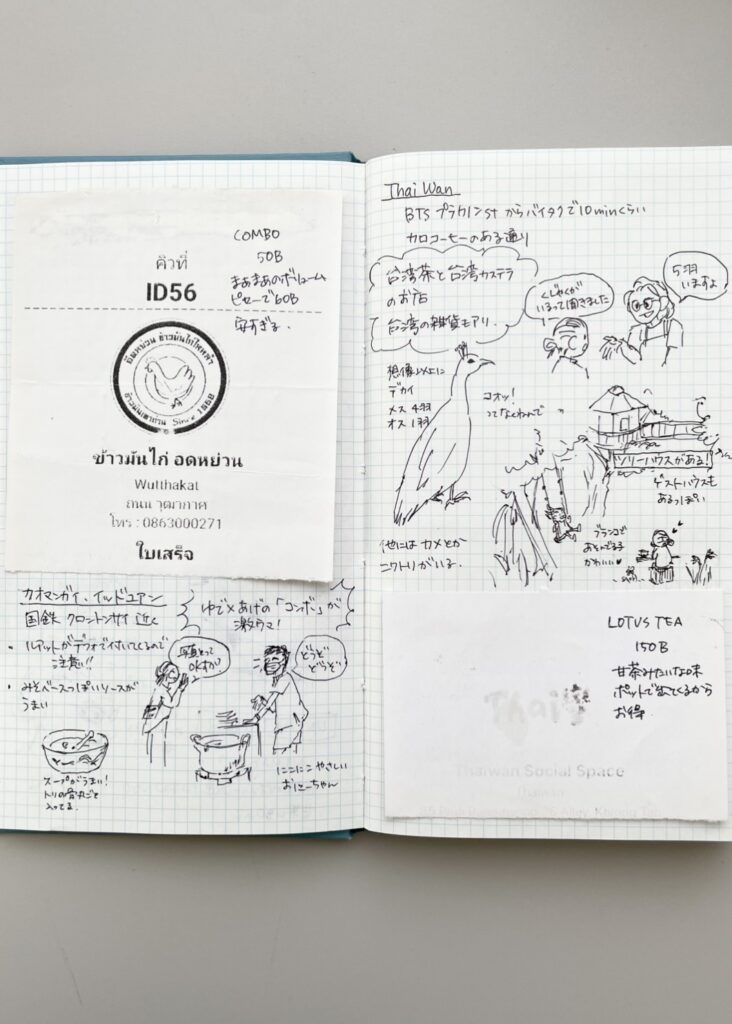 คิวที่
ID56
COMBO
50B
まあまあのボリューム
ピセーで60B
安すぎる.
Since 1968
ข้าวมันไก่ อดหย่วน
Wutthakat
ถนน วุฒากาศ
โทร : 0863000271
ใบเสร็จ
カオマンガイ・イッドユアン
国鉄 クロントンサイ 近く
・ルアットがデフォで付いてくるので
注意!!
・みそベースっぽいソースが
うまい
スープがうまい!
トリの骨丸ごと
入ってる.
ゆで×あげの「コンボ」が
激ウマ!
写真とって
OKすか?
どうぞ
どうぞ
にこにこやさしい
おにーちゃん
Thai Wan
BTS プラカノンst からバイタクで10minくらい
カロコーヒーのある通り
台湾茶と台湾カステラ
のお店
台湾の雑貨モアリ.
くじゃくが
いるって聞きました
5羽
いますよ
想像以上に
デカイ
メス 4羽
オス 1羽
コオッ!
ってなくねんで
ツリーハウスがある!
ゲストハウスも
あるっぽい
ブランコで
あそんでる子
かわいい
他には カメとか
ニワトリがいる.
LOTUS TEA
150B
甘茶みたいな味
ポットで出てくるから
お得
Thai
Thaiwan Social Space
Thaiwan